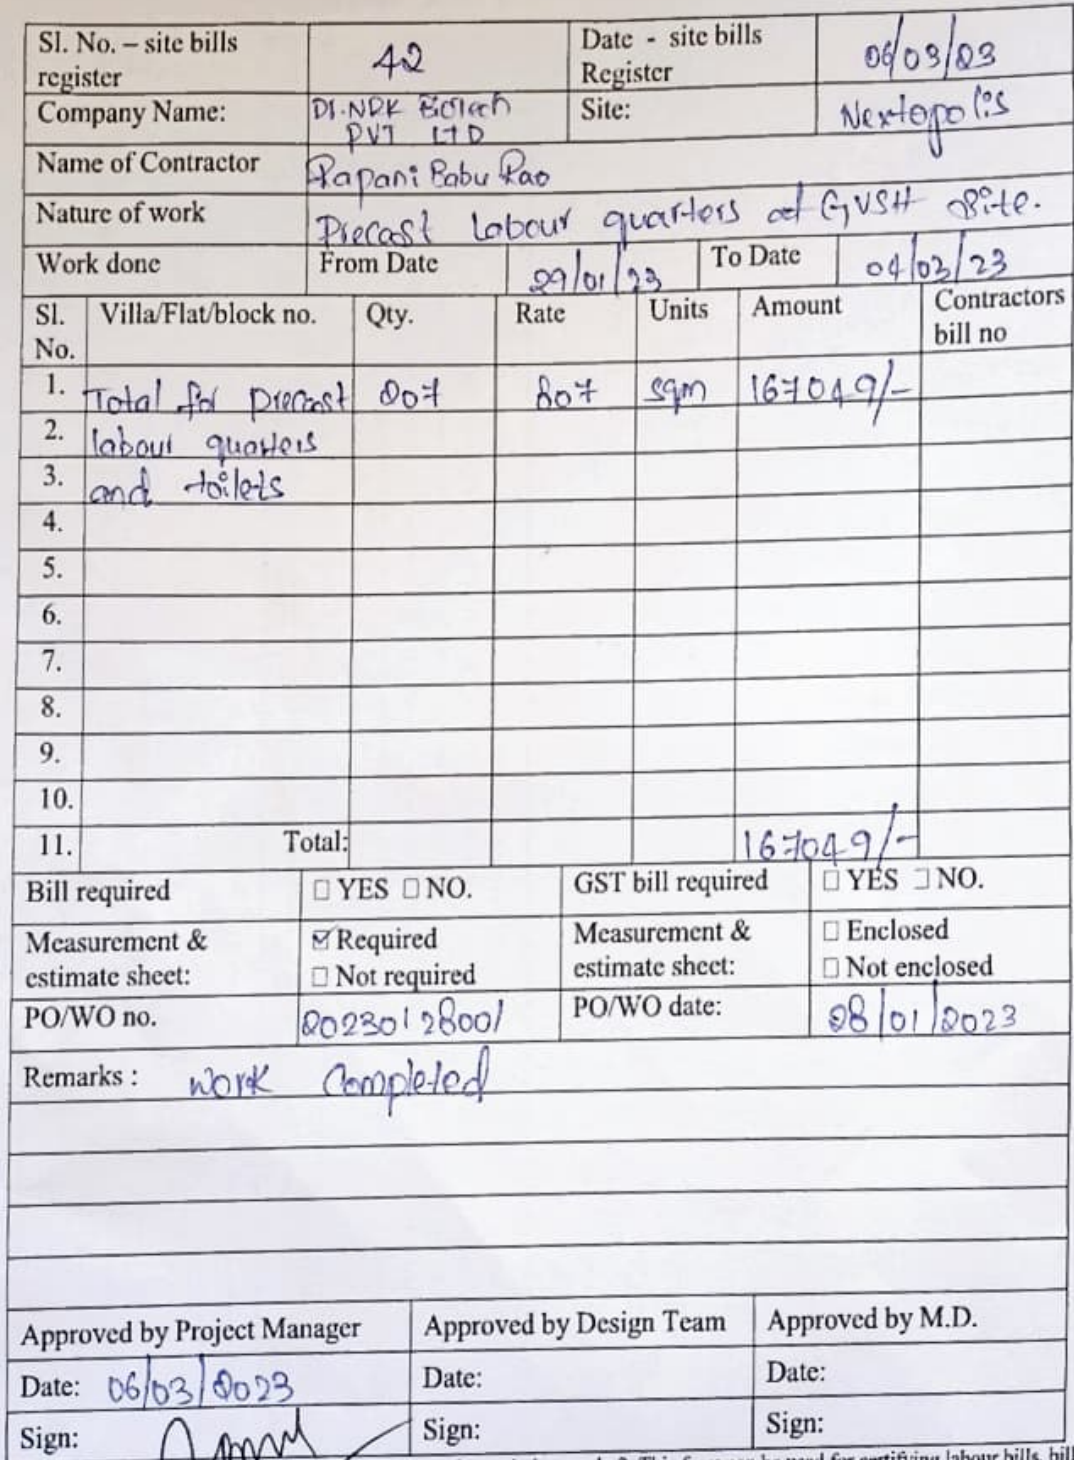 Sl. No. – site bills register 42 Date - site bills Register 06/03/23
Company Name: Dr. NRK Biotech PVT LTD Site: Nextopolis
Name of Contractor Papani Babu Rao
Nature of work Precast Labour quarters at GVSH Site.
Work done From Date 29/01/23 To Date 04/03/23
Sl. No. Villa/Flat/block no. Qty. Rate Units Amount Contractors bill no
1. Total for precast 207 807 sqm 167049/-
2. labour quarters
3. and toilets
4.
5.
6.
7.
8.
9.
10.
11. Total: 167049/-
Bill required □ YES □ NO. GST bill required □ YES □ NO.
Measurement & estimate sheet: ☑ Required □ Not required Measurement & estimate sheet: □ Enclosed □ Not enclosed
PO/WO no. 20230128001 PO/WO date: 28/01/2023
Remarks : Work Completed
Approved by Project Manager Approved by Design Team Approved by M.D.
Date: 06/03/2023 Date: Date:
Sign: Sign: Sign: